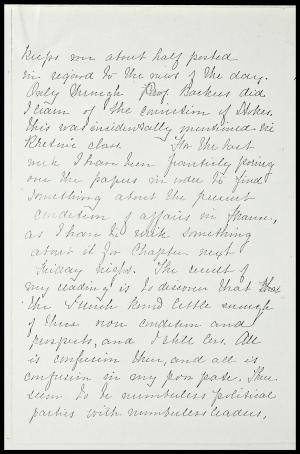 keeps me about half posted
in regard to the news of the day.
Only through Prof. Backus did
I learn of the conviction of Stokes.
This was incidentally mentioned in
Rhetoric class. For the last
week I have been frantically poring
over the papers in order to find
something about the present
condition of affairs in France,
as I have to write something
about it for Chapter next
Friday night. The result of
my reading is to discover that
the French know little enough
of their own condition and
prospects, and I still less. All
is confusion there, and all is
confusion in my poor pate. There
seem to be numberless political
parties with numberless leaders,